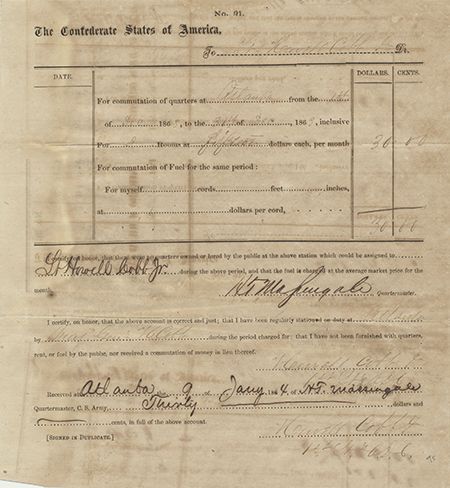 No. 21.
The Confederate States of America,
To Howell Cobb Dr.
DATE. DOLLARS. CENTS.
For commutation of quarters at Atlanta from the 1st
of 186, to the of, 1863, inclusive
For Rooms at dollars each, per month 30 00
For commutation of Fuel for the same period:
For myself cords, feet inches,
at dollars per cord, 30 00
I certify, on honor, that there were no quarters owned or hired by the public at the above station which could be assigned to
Lt Howell Cobb Jr. during the above period, and that the fuel is charged at the average market price for the
month. H.T. Massingale Quartermaster.
I certify, on honor, that the above account is correct and just; that I have been regularly stationed on duty at
by during the period charged for; that I have not been furnished with quarters,
rent, or fuel by the public, nor received a commutation of money in lieu thereof.
Howell Cobb Jr
Received at Atlanta 9 of Jany 1864, of H.T. Massingale
Quartermaster, C. S. Army, Thirty dollars and
cents, in full of the above account.
[SIGNED IN DUPLICATE.] Howell Cobb Jr